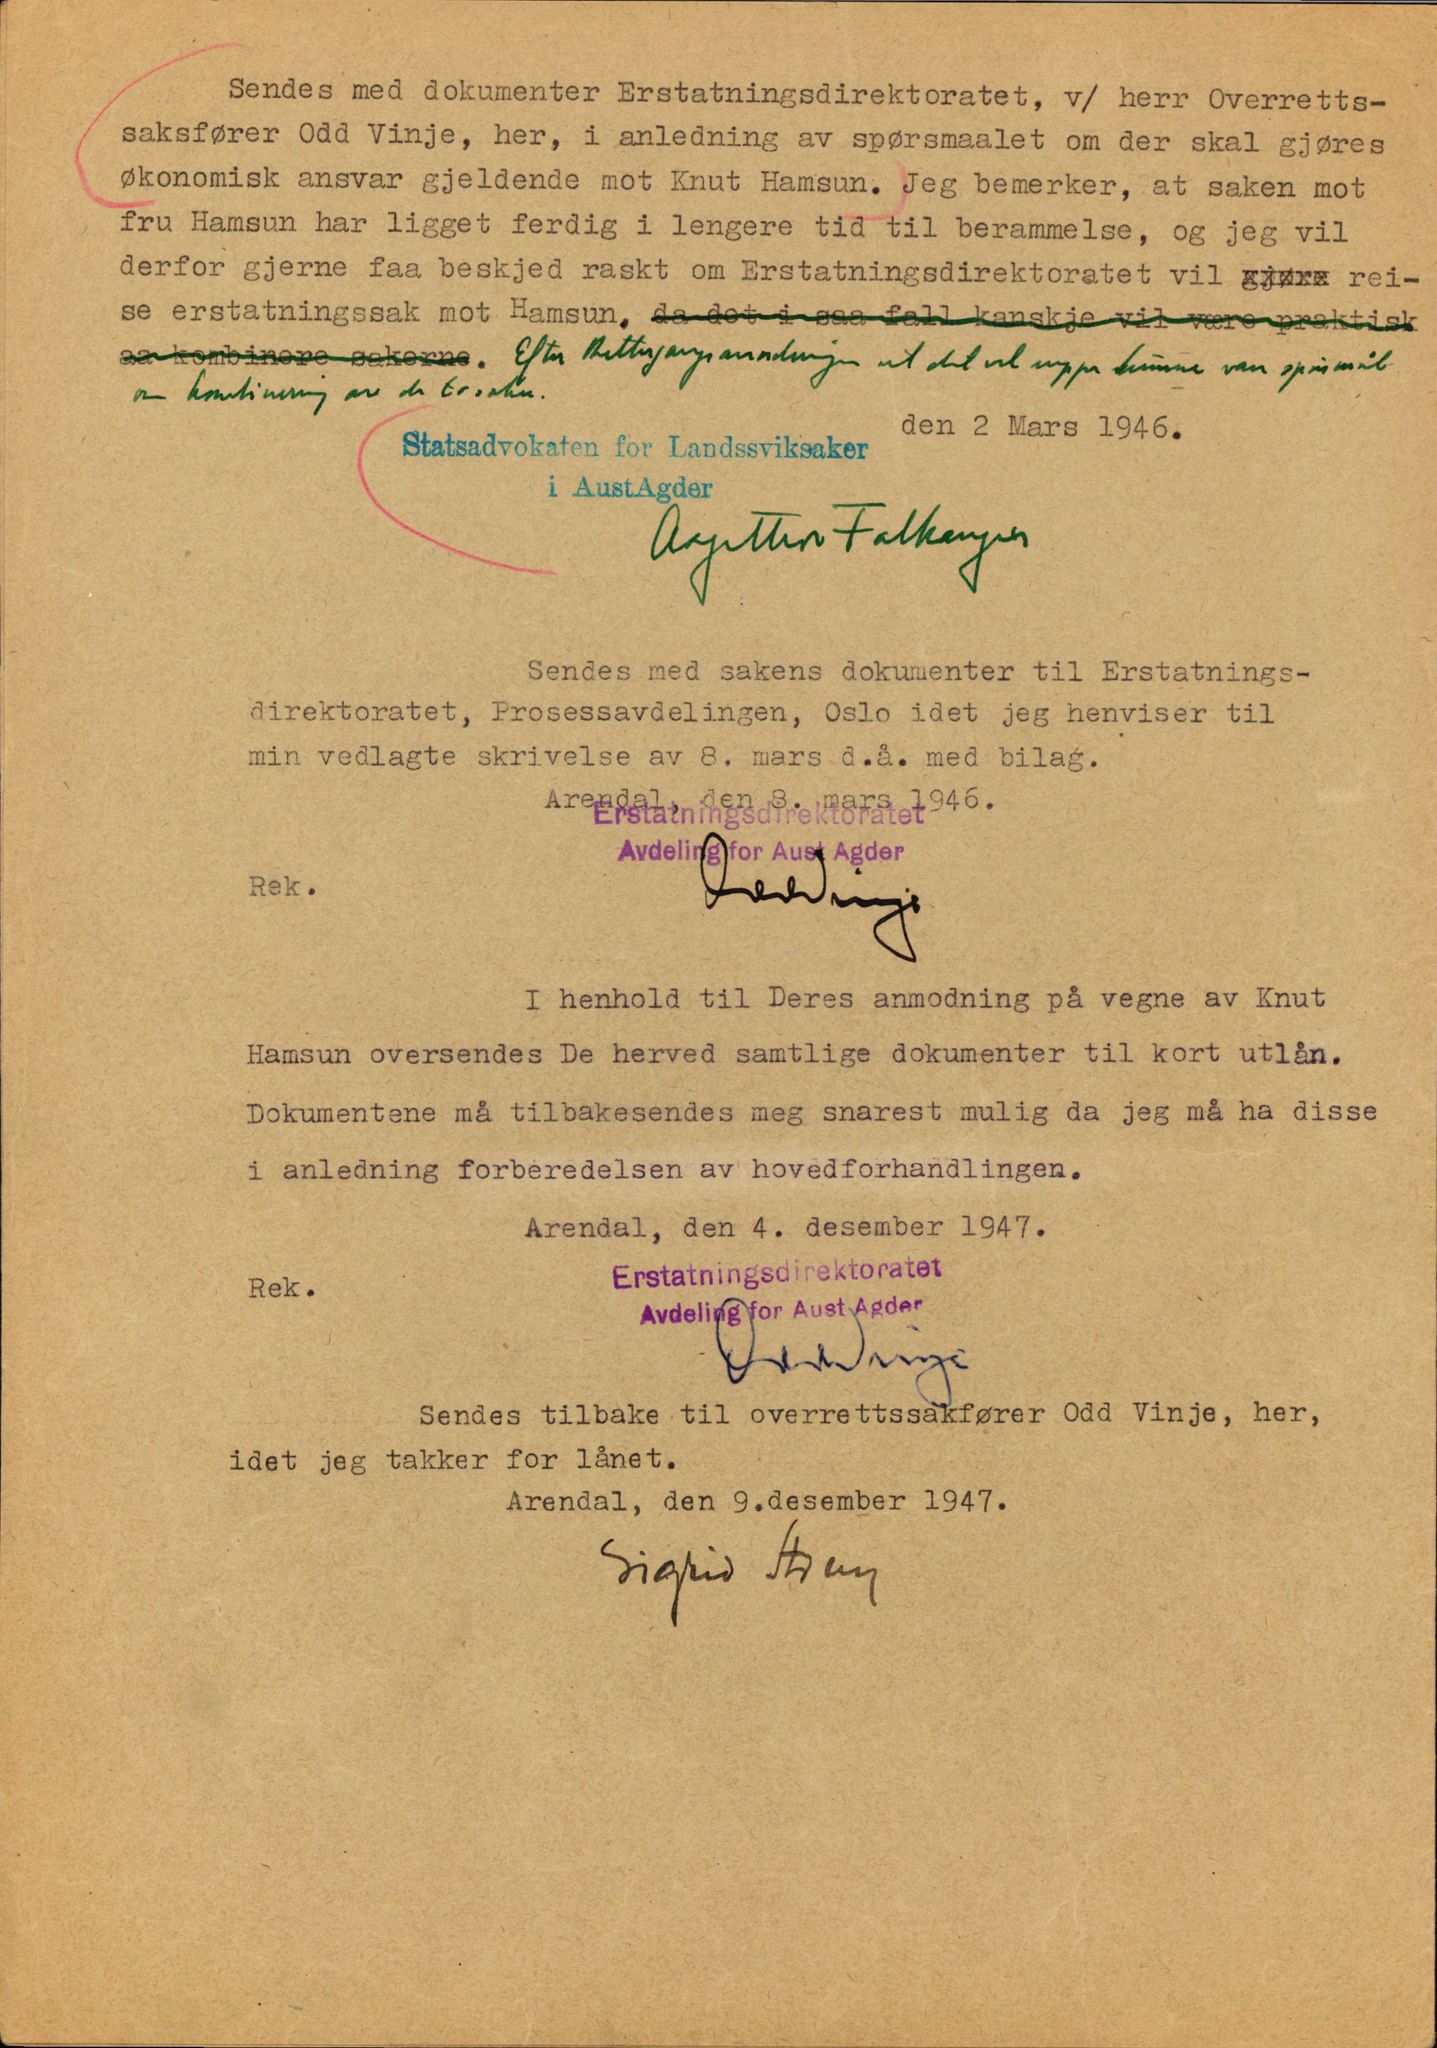 Sendes med dokumenter Erstatningsdirektoratet, v/ herr Overretts-
saksfører Odd Vinje, her, i anledning av spørsmaalet om der skal gjøres
økonomisk ansvar gjeldende mot Knut Hamsun. Jeg bemerker, at saken mot
fru Hamsun har ligget ferdig i lengere tid til berammelse, og jeg vil
derfor gjerne faa beskjed raskt om Erstatningsdirektoratet vil gjøre rei-
se erstatningssak mot Hamsun. da det i saa fall kanskje vil være praktisk
aa kombinere sakerne. Efter Rettergangsanordningen vil det vel neppe kunne være spörsmål
om kombinering av de to saker.
den 2 Mars 1946.
Statsadvokaten for Landssviksaker
i AustAgder
Falkanger
Sendes med sakens dokumenter til Erstatnings-
direktoratet, Prosessavdelingen, Oslo idet jeg henviser til
min vedlagte skrivelse av 8. mars d.å. med bilag.
Arendal, den 8. mars 1946.
Erstatningsdirektoratet
Avdeling for Aust Agder
Rek.
Odd Vinje
I henhold til Deres anmodning på vegne av Knut
Hamsun oversendes De herved samtlige dokumenter til kort utlån.
Dokumentene må tilbakesendes meg snarest mulig da jeg må ha disse
i anledning forberedelsen av hovedforhandlingen.
Arendal, den 4. desember 1947.
Erstatningsdirektoratet
Rek.
Avdeling for Aust Agder
Odd Vinje
Sendes tilbake til overrettssakfører Odd Vinje, her,
idet jeg takker for lånet.
Arendal, den 9.desember 1947.
Sigrid Stray